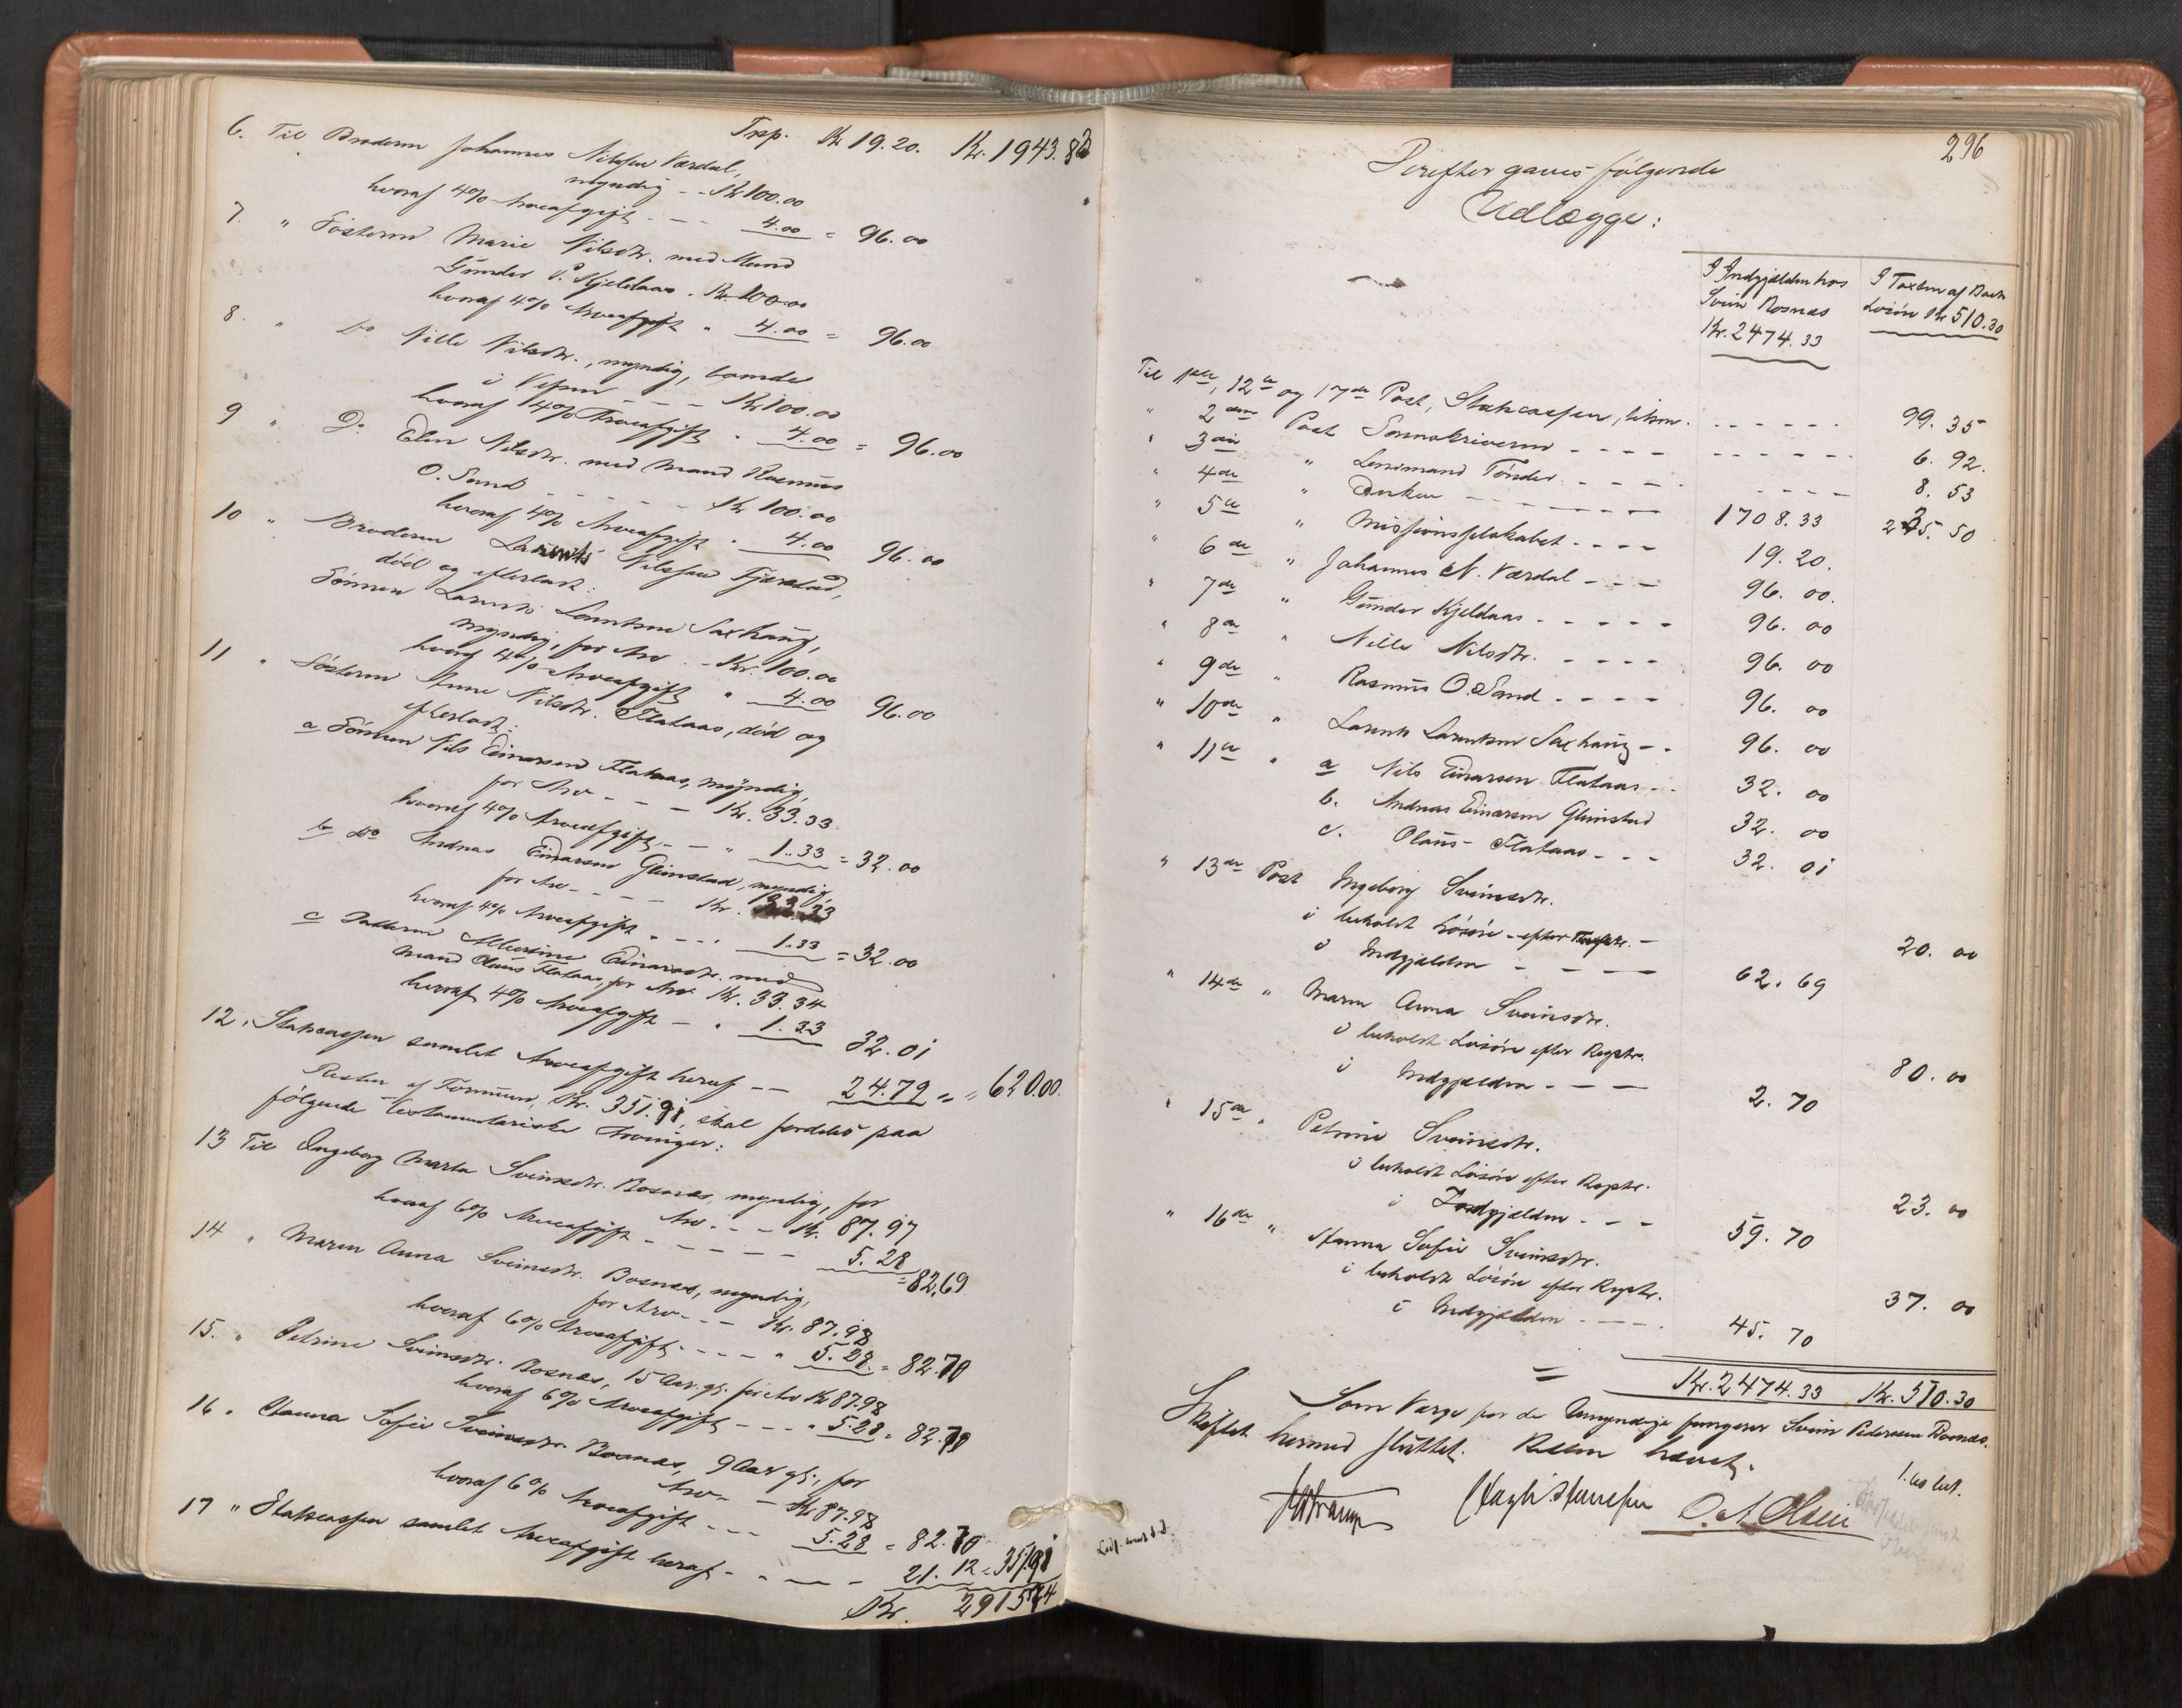 Trsp. Kr 19.20. Kr. 1943.83
6. Til Broderen Johannes Nilssen Værdal,
myndig - - Kr 100.00
hvoraf 4% Arveafgift - - - 4.00 = 96.00
7. " Søsteren Marie Nilsdtr. med Mand
Gunder P. Kjeldaas . Kr. 100.00
hvoraf 4% Arveafgift " 4.00 = 96.00
8. " Do Nille Nilsdtr., myndig, boende
i Vefsen - - - Kr 100.00
hvoraf 4% Arveafgift . 4.00 = 96.00
9 " Do Elen Nilsdtr. med Mand Rasmus
O. Sand - - - - - Kr 100.00
hvoraf 4% Arveafgift . 4.00 96.00
10 " Broderen Larents Nilssen Fjerstad,
død og efterladt:
Sønnen Larents Larentsen Saxhaug,
myndig, for Arv - - Kr. 100.00
hvoraf 4% Arveafgift " 4.00 96.00
11 " Søsteren Anne Nilsdtr. Flataas, død og
efterladt:
a Sønnen Nils Einarsen Flataas, myndig,
for Arv - - - Kr. 33.33
hvoraf 4% Arveafgift - - " 1.33 = 32.00
b Do Andreas Einarsen Glimstad, myndig,
for Arv - - - Kr. 33.33
hvoraf 4% Arveafgift . - - - 1.33 = 32.00
c Datteren Albertine Einarsdtr. med
Mand Olaus Flataas, for Arv Kr. 33.34
hvoraf 4% Arveafgift - . 1.33 32.01
12. Statscassen samlet Arveafgift heraf - - 24.79 = 620.00.
Resten af Formuen, Kr. 351.91, skal fordeles paa
følgende testamentariske Arvinger:
13 Til Ingeborg Marta Sveinsdtr. Bosnæs, myndig, for
Arv - - - Kr. 87.97
hvoraf 6% Arveafgift - - - - - 5.28 = 82.69
14 " Maren Anna Sveinsdtr. Bosnæs, myndig,
for Arv - - - Kr. 87.98
hvoraf 6% Arveafgift - - - - " 5.28 = 82.70
15. " Petrine Sveinsdtr. Bosnæs, 15 Aar gl. for Arv Kr 87.98
hvoraf 6% Arveafgift - - - . 5.28 = 82.70
16 . Hanna Sofie Sveinsdtr. Bosnæs, 9 Aar gl., for
Arv - - Kr 87.98
hvoraf 6% Arveafgift - - - 5.28 = 82.70
17 " Statscassen samlet Arveafgift heraf - - - - 21.12 = 351.91
Kr. 2915.74
296
Derefter gaves følgende
Udlægge:
I Indgjælden hos
Svein Bosnæs
Kr. 2474.33
I Taxten af Boets
Løsøre Kr 510.30
Til 1ste, 12te og 17de Post, Statscassen, tilsm. - - - - - - 99. 35
" 2den Post Sorenskriveren - - - - - - - - - - 6. 92.
" 3die " Lensmand Tønder - - - - - - - - 8. 53
" 4de " Enken - - - - - - 1708. 33 235. 50
" 5te " Missionsselskabet - - - - 19. 20.
" 6de " Johannes N. Værdal - - - 96. 00.
" 7de " Gunder Kjeldaas - - - - - 96. 00
" 8de " Nille Nilsdtr. - - - - 96. 00
" 9de " Rasmus O. Sand - - - - 96. 00
" 10de " Larents Larentsen Saxhaug - - 96. 00
" 11te " a Nils Einarsen Flataas - - 32. 00
b. Andreas Einarsen Glimstad 32. 00
c. Olaus Flataas - - - 32. 01
" 13de Post Ingeborg Sveinsdtr.
i beholdt Løsøre efter Registr. - 20. 00
i Indgjælden - - - - 62. 69
" 14de " Maren Anna Sveinsdtr.
i beholdt Løsøre efter Registr. 80. 00
i Indgjælden - - - 2. 70
" 15de " Petrine Sveinsdtr.
i beholdt Løsøre efter Registr. 23. 00
i Indgjælden - - - 59. 70
" 16de " Hanna Sofie Sveinsdtr.
i beholdt Løsøre efter Registr. 37. 00
i Indgjælden - - - - 45. 70
= Kr. 2474.33 Kr. 510.30
Som Værge for de Umyndige fungerer Svein Pedersen Bosnæs.
Skiftet hermed sluttet. Retten hævet.
O. A. Olsen